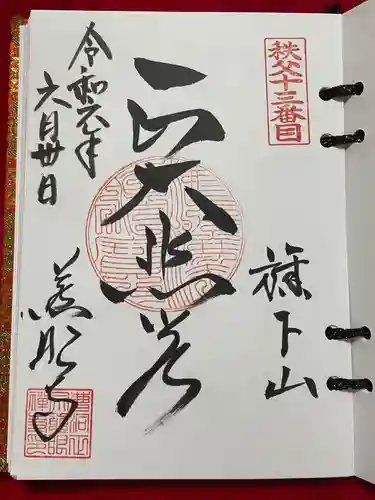 秩父十三番目
旗下山
正大悲者
令和六年
六月卅日
慈眼寺